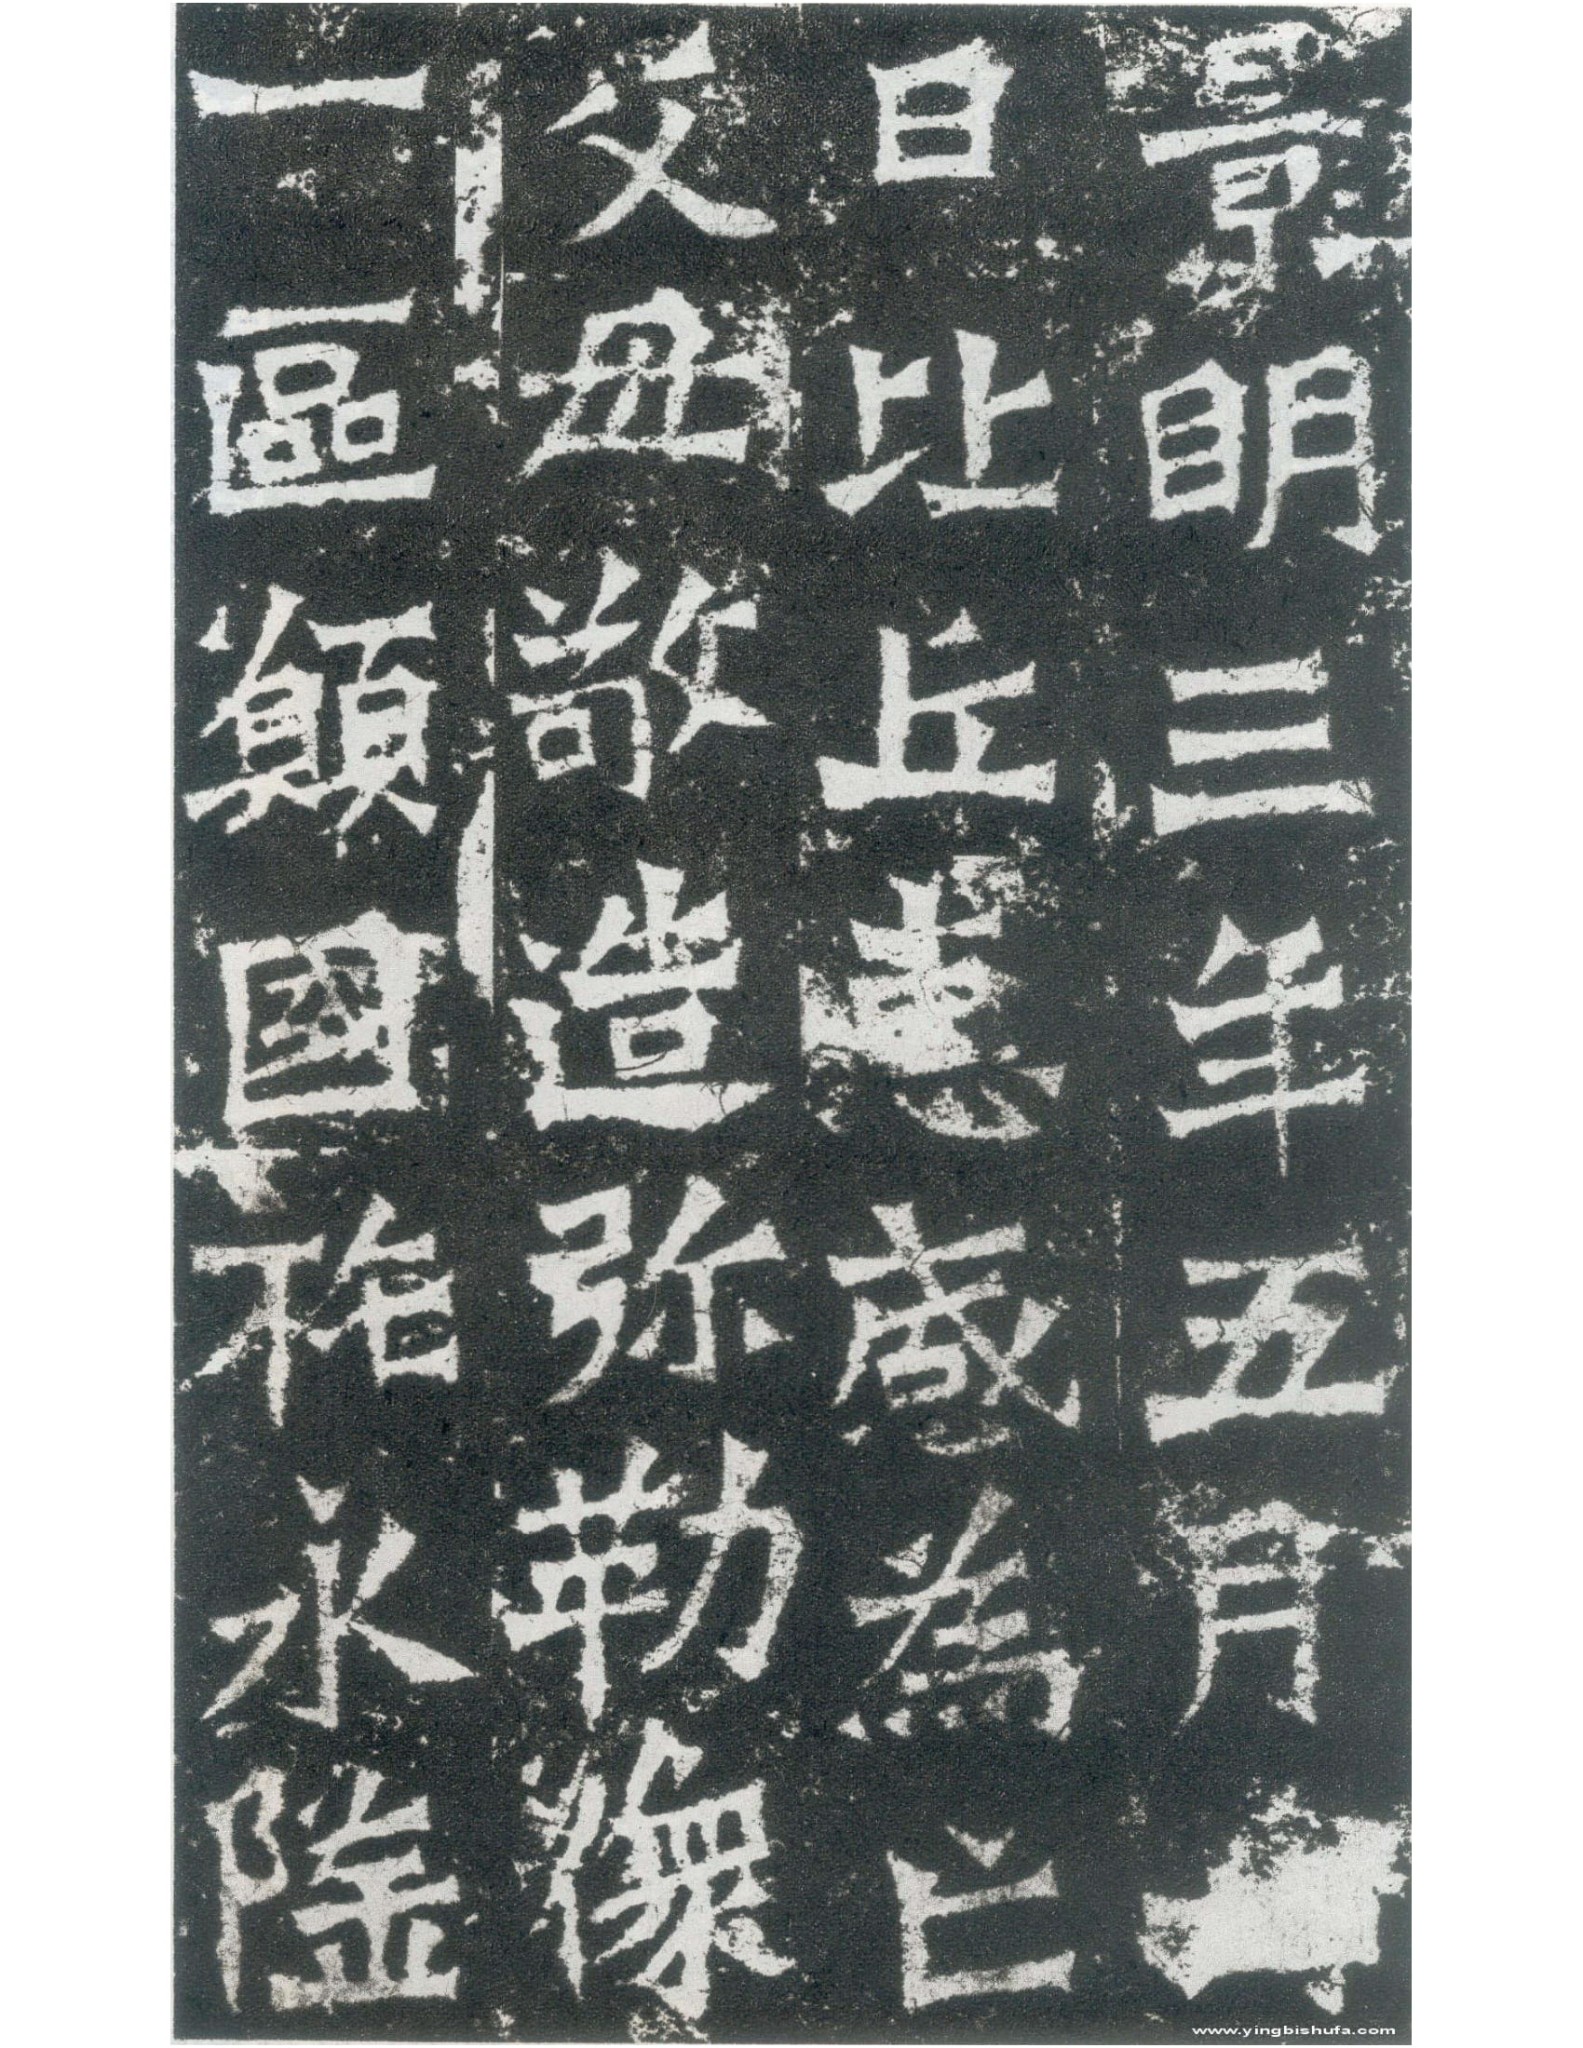 景明三年五月
日比丘惠感為亡
父母敬造弥勒像
一區願國祚永隆
www.yingbishufa.com